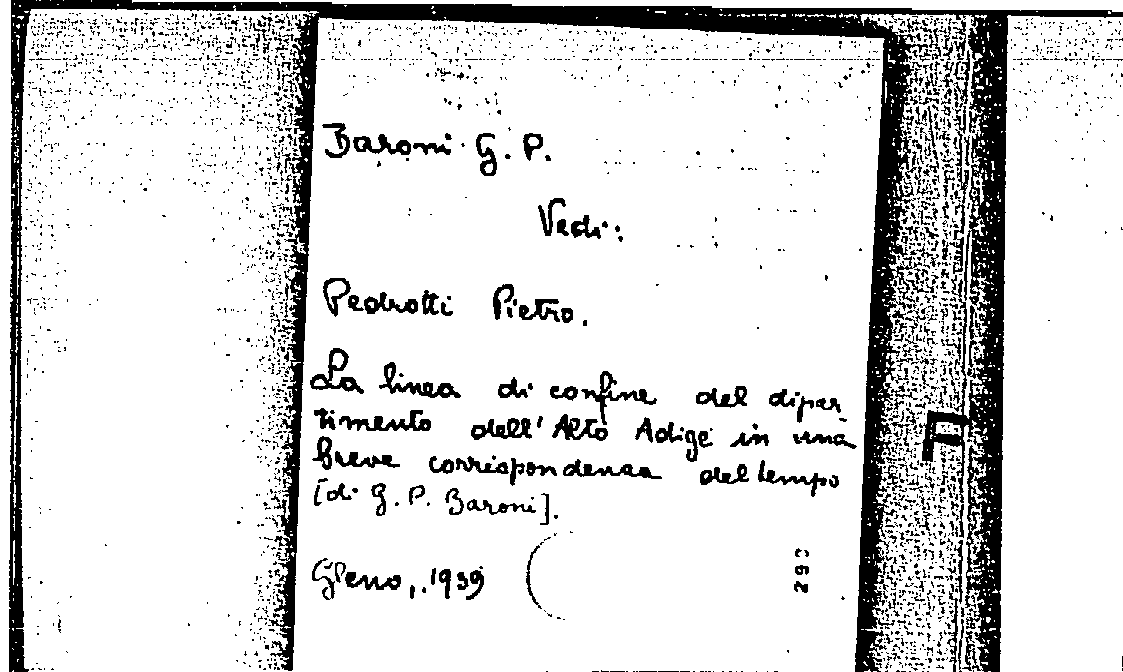 Baroni G. P.
Vedi:
Pedrotti Pietro.
La linea di confine del dipar_
timento dell'Alto Adige in una
breve corrispondenza del tempo
[di G. P. Baroni].
Gleno, 1939
F